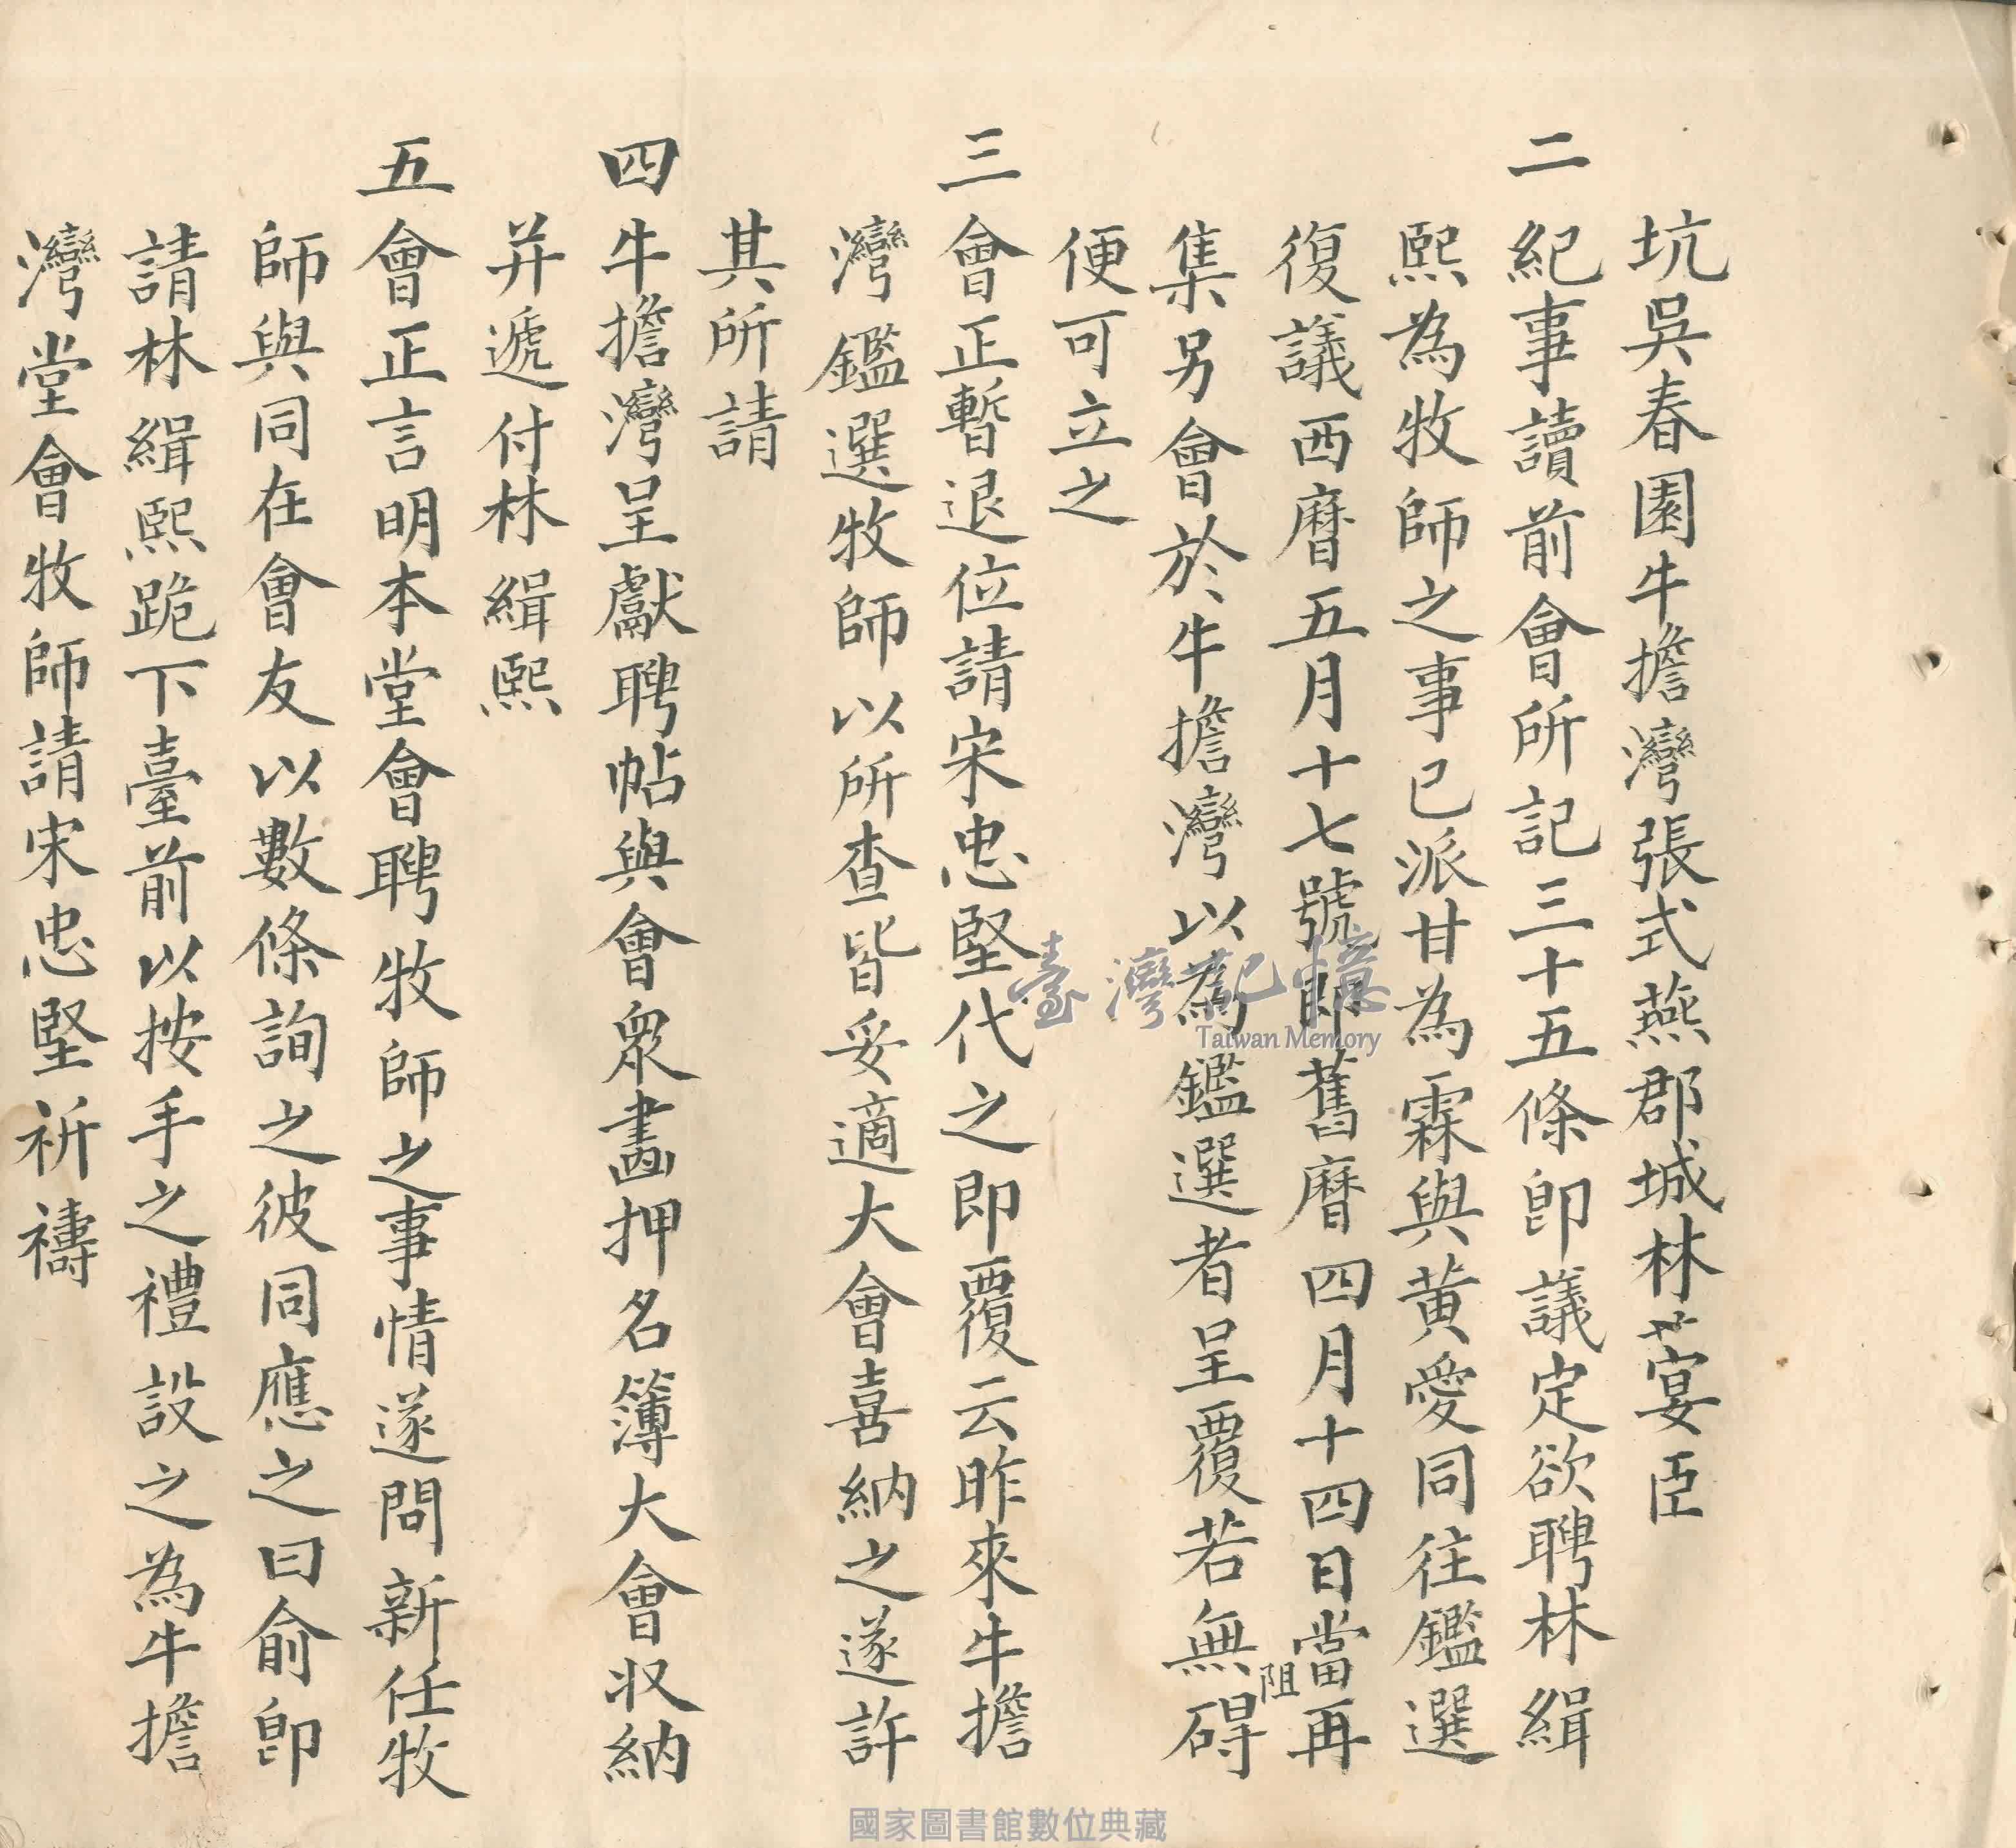 坑吳春園牛擔灣張式燕郡城林宴臣
二 紀事讀前會所記三十五條即議定欲聘林緝
熙為牧師之事已派甘為霖與黃愛同往鑑選
復議西曆五月十七號即舊曆四月十四日當再
集另會於牛擔灣以為鑑選者呈覆若無阻碍
便可立之
三 會正暫退位請宋忠堅代之即覆云昨來牛擔
灣鑑選牧師以所查皆妥適大會喜納之遂許
其所請
四 牛擔灣呈獻聘帖與會眾畵押名簿大會収納
并遞付林緝熙
五 會正言明本堂會聘牧師之事情遂問新任牧
師與同在會友以數條詢之彼同應之曰俞即
請林緝熙跪下臺前以按手之禮設之為牛擔
灣堂會牧師請宋忠堅祈禱
臺灣記憶
Taiwan Memory
國家圖書館數位典藏